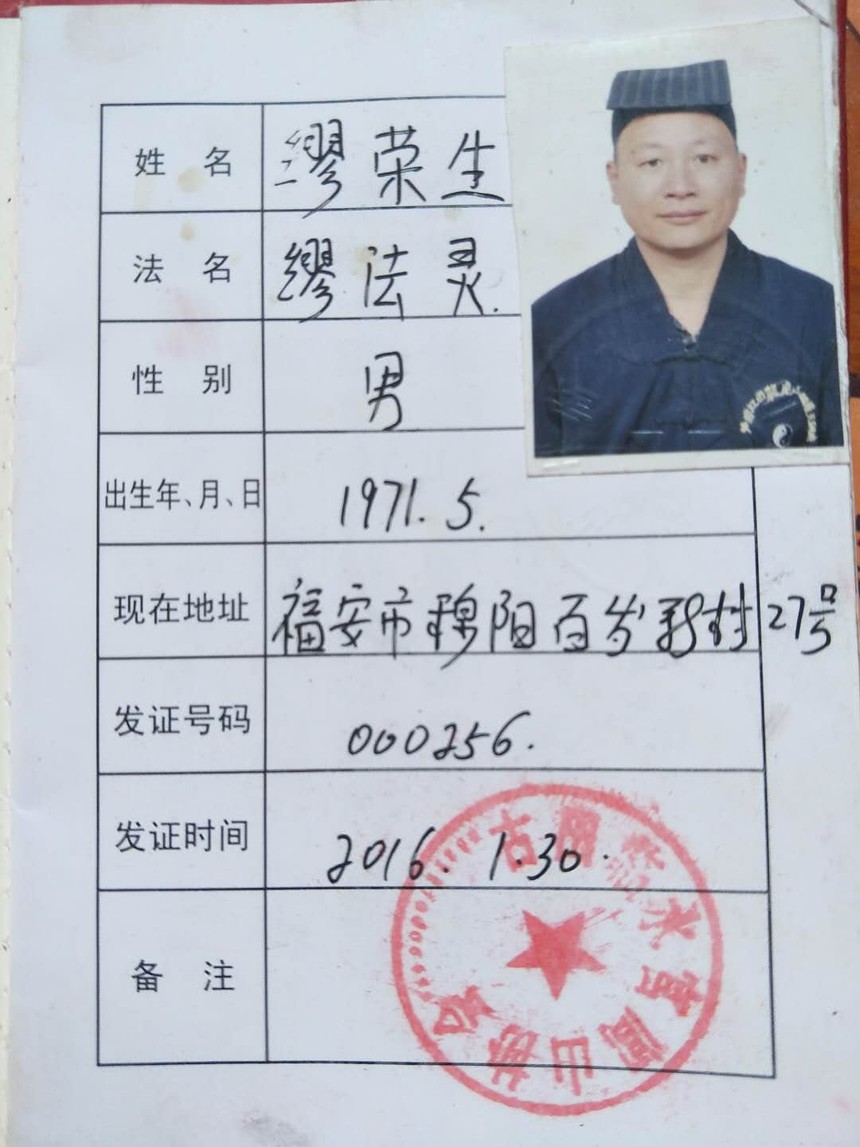 姓 名 缪荣生
法 名 缪法灵.
性 别 男
出生年、月、日 1971.5.
现在地址 福安市穆阳百岁新村27号
发证号码 000256.
发证时间 2016.1.30.
备 注
古田 水宫闾山